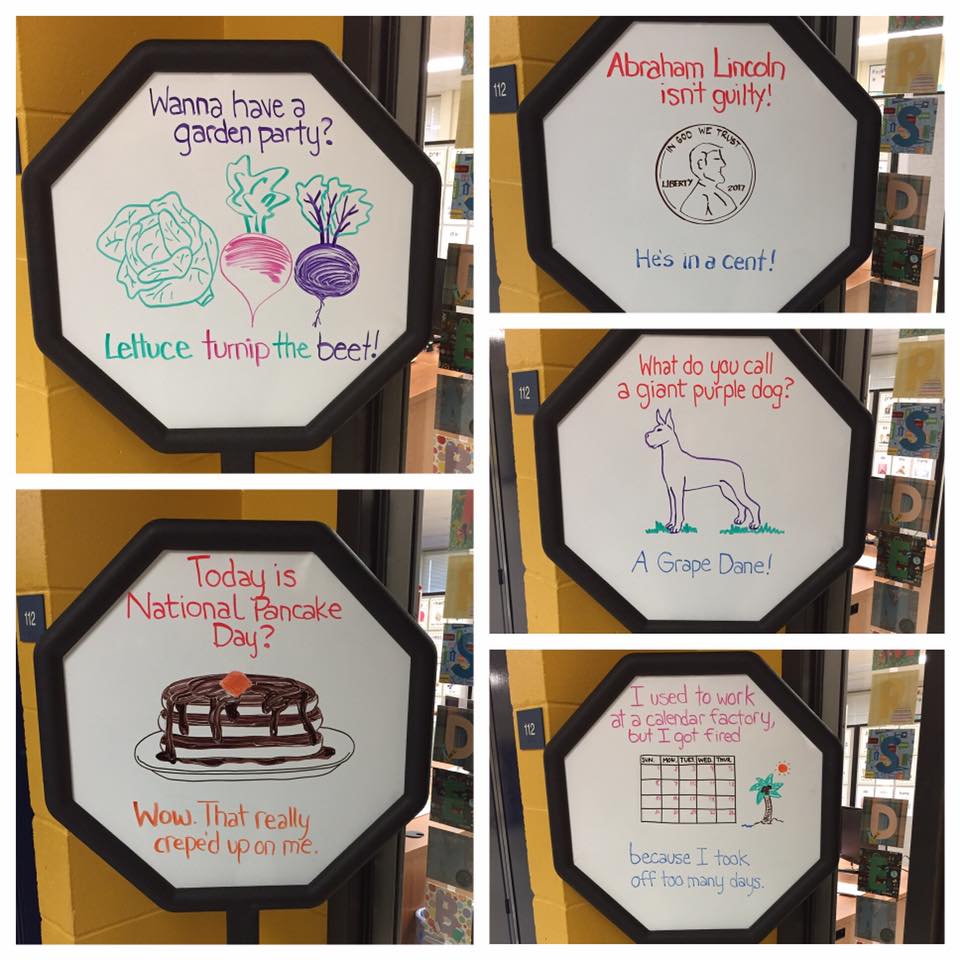 Wanna have a
garden party?
Lettuce turnip the beet!
112
Abraham Lincoln
isn't guilty!
IN GOD WE TRUST
LIBERTY 2017
He's in a cent!
112
What do you call
a giant purple dog?
A Grape Dane!
112
Today is
National Pancake
Day?
Wow. That really
creped up on me.
112
I used to work
at a calendar factory,
but I got fired
SUN. MON. TUES. WED. THUR.
because I took
off too many days.
S
D
E
S
D
E
S
D
E